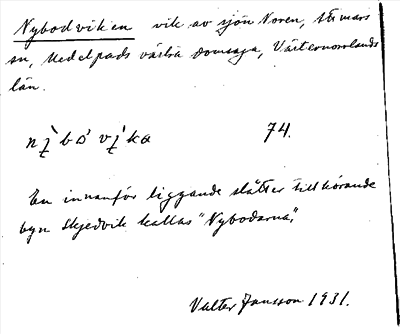 Nybodviken vik av sjön Noren, Stömars
sn, Medelpads västra domsaga, Västernorrlands
län.
bo 74.
En innanför liggande slåtter tillhörande
byn Skjedvik kallas "Nybodarna".
Valter Jansson 1931.